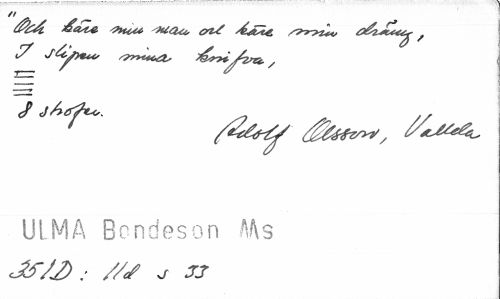 "Och kära min man och kära min dräng,
I slipen mina knifva,
8 strofer.
Adolf Olsson, Vallda
ULMA Bondeson Ms
351D: 11d s 33